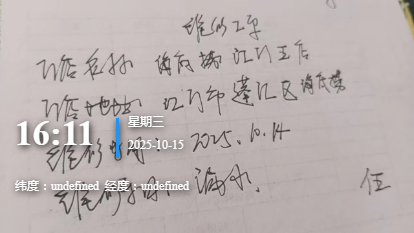 维修工单
门店名称 海底捞江门五店
门店地址 江门市蓬江区海底捞
维修时间:2025.10.14
维修原因:漏水.
伍
16:11
星期三
2025-10-15
纬度:undefined 经度:undefined